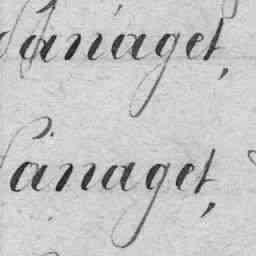 Sanaget,
Sanaget,